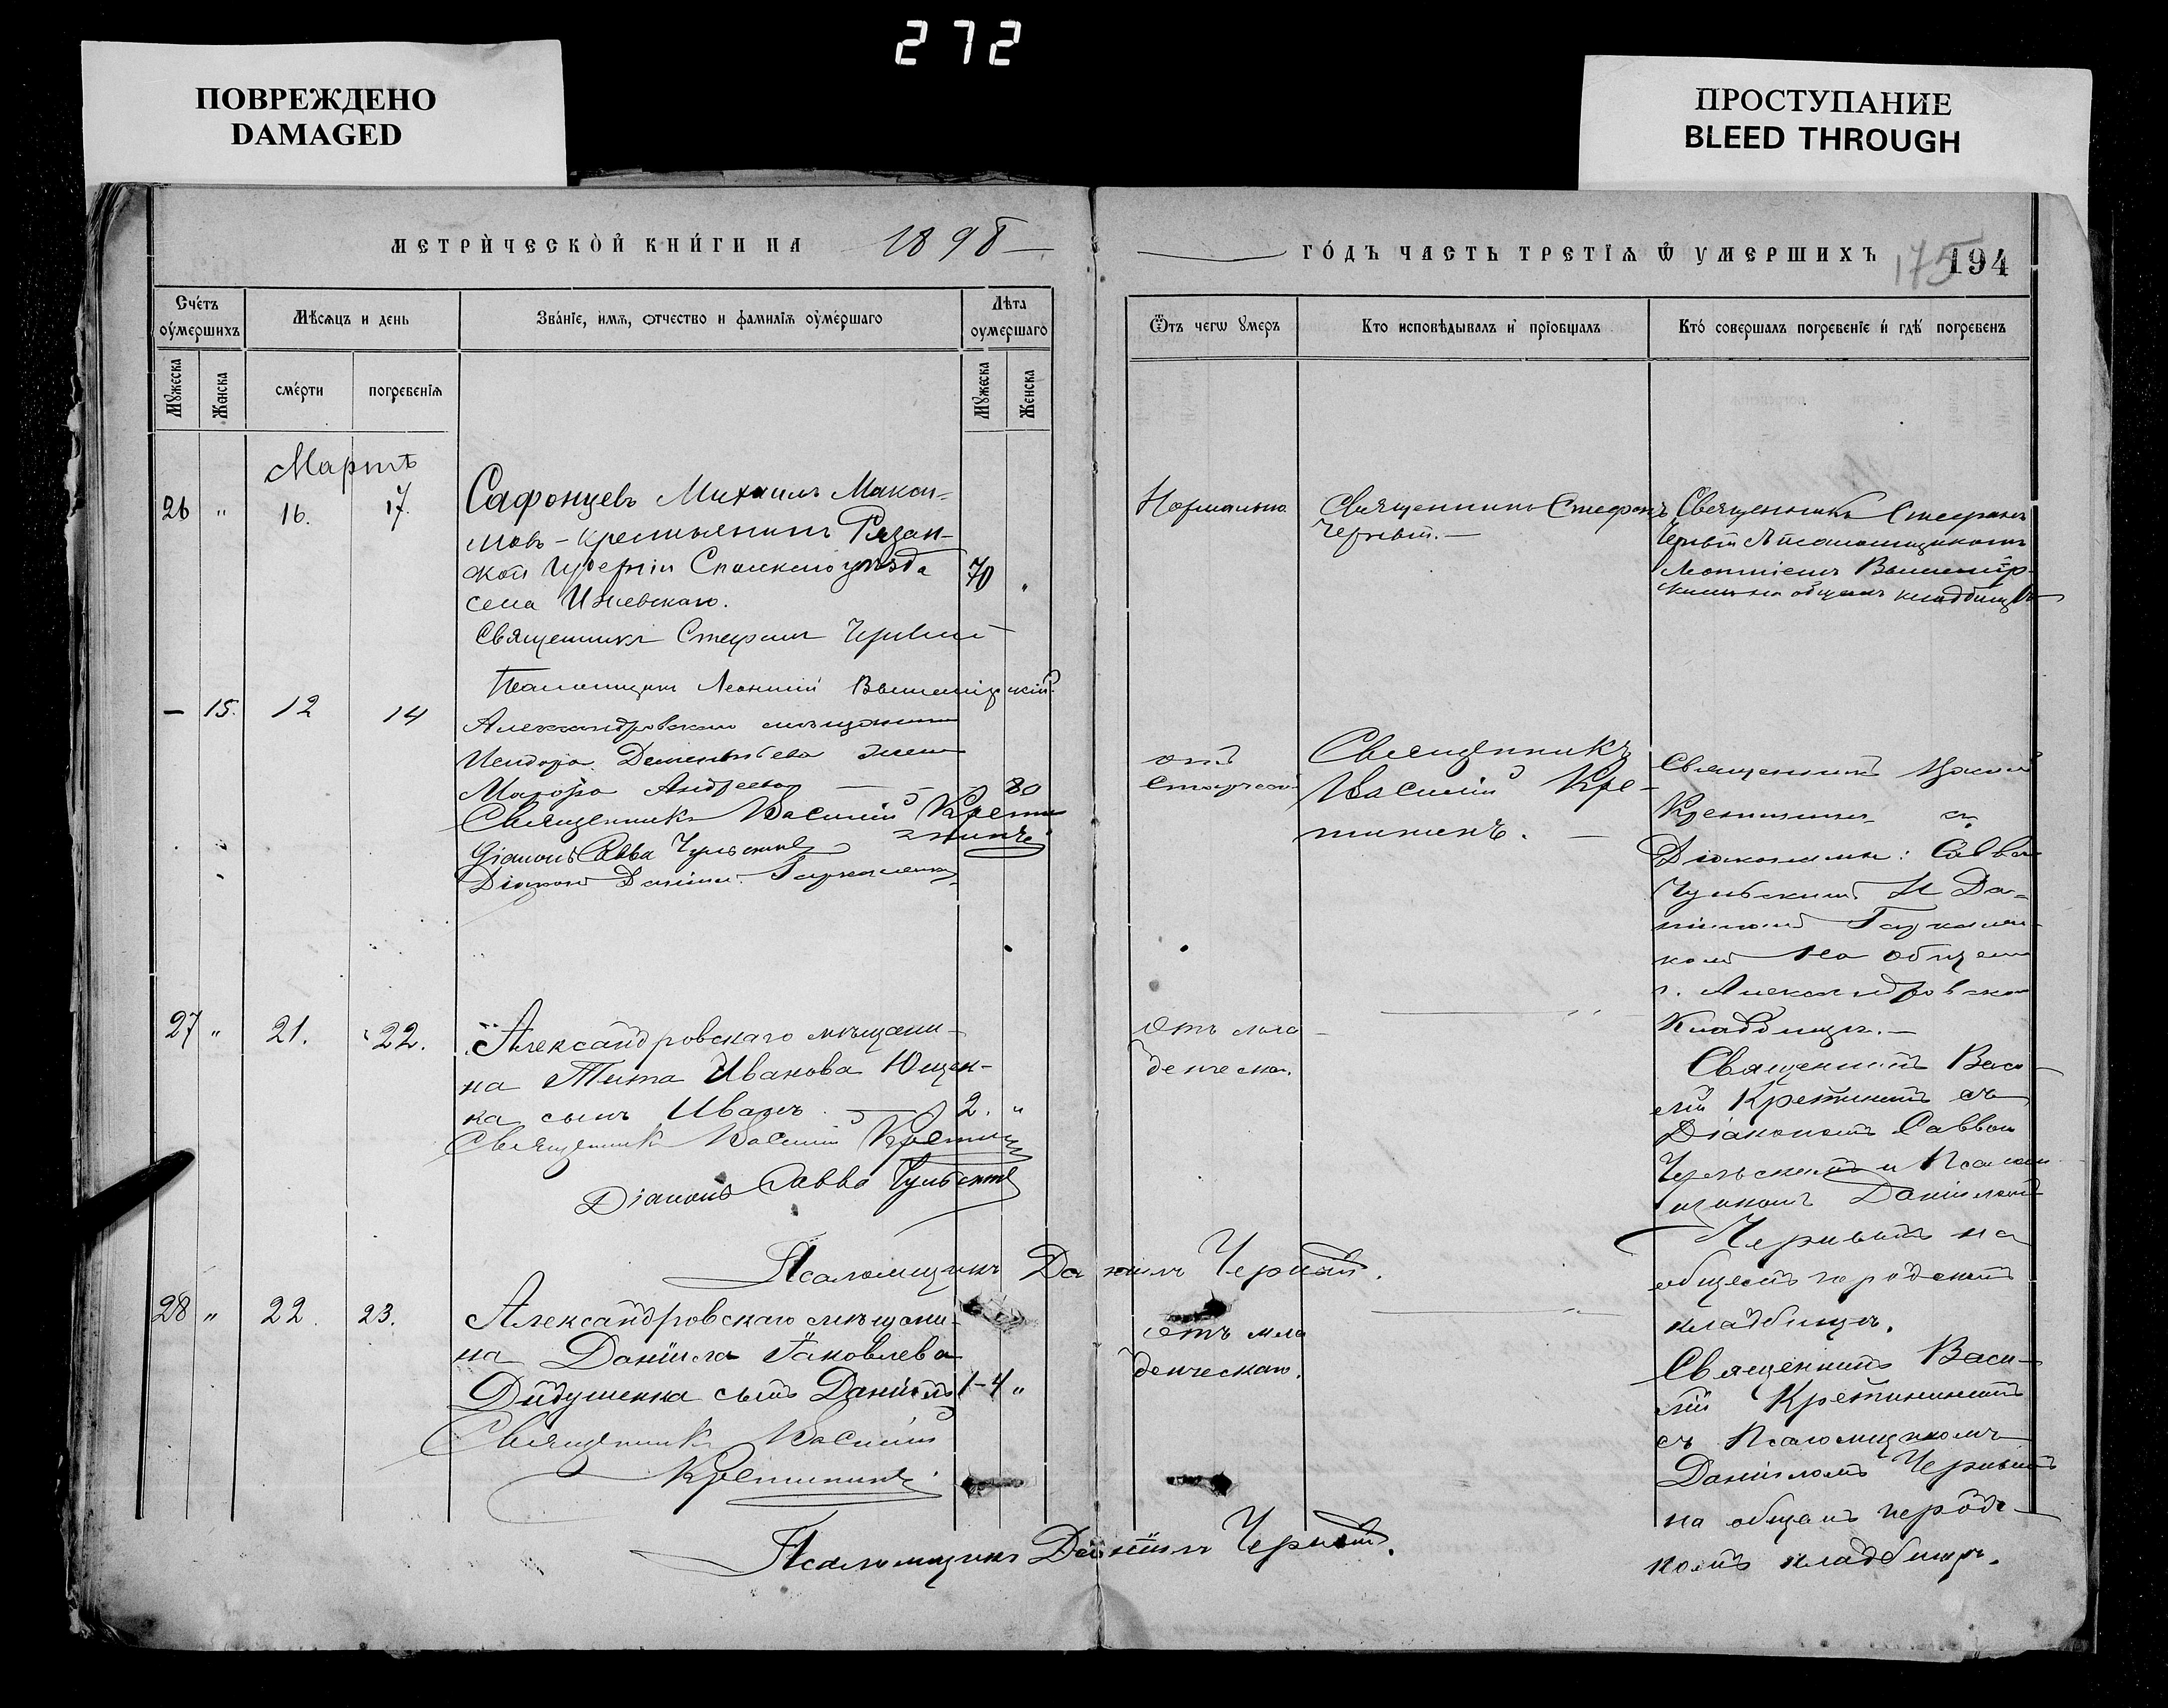 272
ПОВРЕЖДЕНО
DAMAGED
ПРОСТУПАНИЕ
BLEED THROUGH
МЕТРИЧЕСКОЙ КНИГИ НА 1898
ГОДЪ ЧАСТЬ ТРЕТІѦ Ѿ УМЕРШИХЪ
175 194
Счетъ оумершихъ
Мѣсѧцъ и день
Званіе, имѧ, отчество и фамиліѧ оумершаго
Лѣта оумершаго
Ѿтъ чегѡ умеръ
Кто исповѣдывалъ и пріобщалъ
Кто совершалъ погребеніе и гдѣ погребенъ
Мужеска
Женска
смерти
погребеніѧ
Мужеска
Женска
Мартъ
26 " 16. 17.
Сафонцевъ Михаилъ
крестьянинъ Рязан-
ской Губерніи Спасскаго уѣзда
села Ижевскаго.
70
Священникъ Стефанъ Черный
Псаломщикъ Леонтій
Нормально
Священникъ Стефанъ
Черный.
Священникъ Стефанъ
Черный съ псаломщикомъ
Леонтіемъ
на общемъ кладбищѣ
— 15. 12 14
Александровскаго мѣщанина
Дементьева жена
Андреева 80
Священникъ Василій Крети-
нинъ
Діаконъ Савва Чульскій
Діаконъ Даніилъ
отъ
старости
Священникъ
Василій Кре-
тининъ.
Священникъ Василій
Кретининъ съ
Діаконами: Саввою
Чульскимъ и Да-
ніиломъ
на общемъ
г. Александровска
Кладбищѣ.
27 " 21. 22.
Александровскаго мѣщани-
на Тита Иванова Ющен-
ка сынъ Иванъ 2. "
Священникъ Василій Кретининъ
Діаконъ Савва Чульскій
Псаломщикъ Даніилъ Черный.
Отъ мла
денческой.
Священникъ Васи-
лій Кретининъ съ
Діакономъ Саввою
Чульскимъ и Псалом-
щикомъ Даніиломъ
Чернымъ на
общемъ городскомъ
кладбищѣ.
28 " 22. 23.
Александровскаго мѣщани-
на Даніила Яковлева
Дидушенка сынъ Даніилъ 1-4 "
Священникъ Василій
Кретининъ.
Псаломщикъ Даніилъ Черный.
отъ мла
денческаго.
Священникъ Васи-
лій Кретининимъ
съ Псаломщикомъ
Даніиломъ Чернымъ
на общемъ городс-
комъ кладбищѣ.